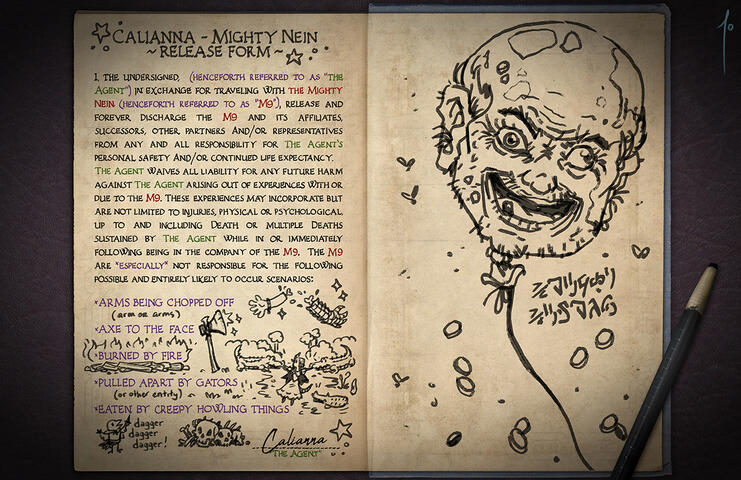 Calianna - Mighty Nein
~ Release Form ~
I, the undersigned, (henceforth referred to as "The
Agent") in exchange for traveling with the Mighty
Nein (henceforth referred to as "M9"), release and
forever discharge the M9 and its affiliates,
successors, other partners and/or representatives
from any and all responsibility for The Agent's
personal safety and/or continued life expectancy.
The Agent waives all liability for any future harm
against The Agent arising out of experiences with or
due to the M9. These experiences may incorporate but
are not limited to injuries, physical or psychological,
up to and including Death or Multiple Deaths
sustained by The Agent while in or immediately
following being in the company of the M9. The M9
are *especially* not responsible for the following
possible and entirely likely to occur scenarios:
*Arms being chopped off
(arm or arms)
*Axe to the face
*Burned by fire
*Pulled apart by gators
(or other entity)
*Eaten by creepy howling things
dagger
dagger
dagger!
Calianna
"The Agent"